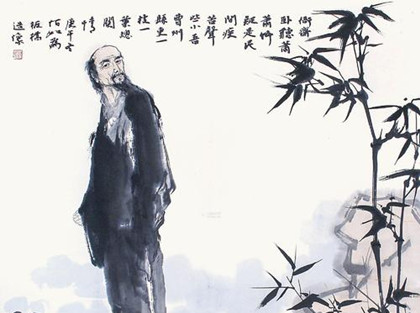 衙齋
卧聽蕭
蕭竹
疑是民
间疾
苦聲
些小吾
曹州
縣吏一
枝一
葉總
關
情
庚午
為
板橋
造像